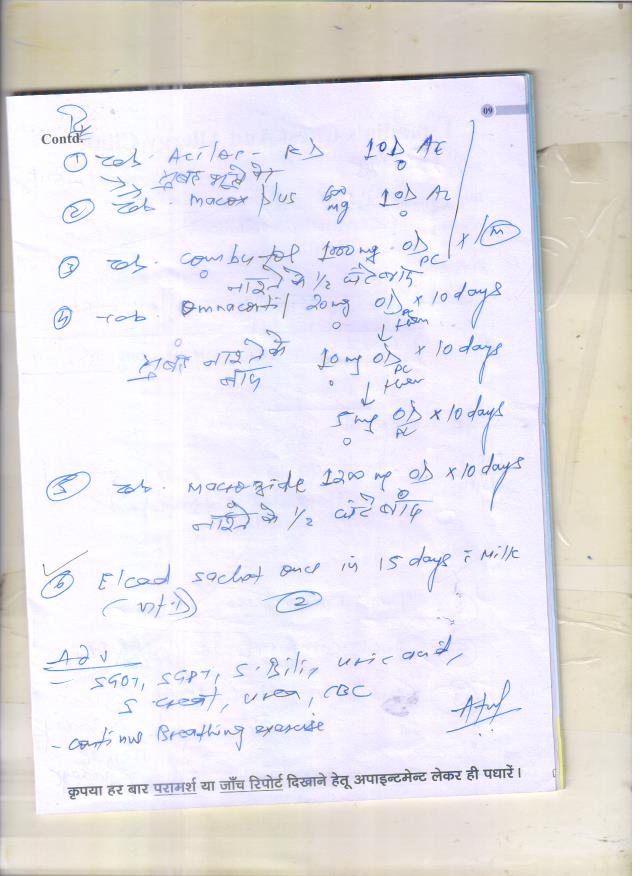 09
Rx
Contd.
① Tab. Aciloc - RD 1OD AC
सुबह भूखे पेट
② Tab. macox plus 600 mg 1OD AC
③ Tab. combutol 1000 mg OD PC × 1 m
नाश्ते के 1/2 घंटे बाद
④ Tab. Omnacortil 20 mg OD PC × 10 days
↓ then
सुबह नाश्ते के बाद 10 mg OD PC × 10 days
↓ then
5 mg OD PC × 10 days
⑤ Tab. macrozide 1200 mg OD × 10 days
नाश्ते के 1/2 घंटे बाद
⑥ Elcad sachet once in 15 days c milk
②
Adv
- SGOT, SGPT, S. Bili, uric acid,
S creat, urea, CBC
- continue Breathing exercise
कृपया हर बार परामर्श या जाँच रिपोर्ट दिखाने हेतू अपाइन्टमेन्ट लेकर ही पधारें।